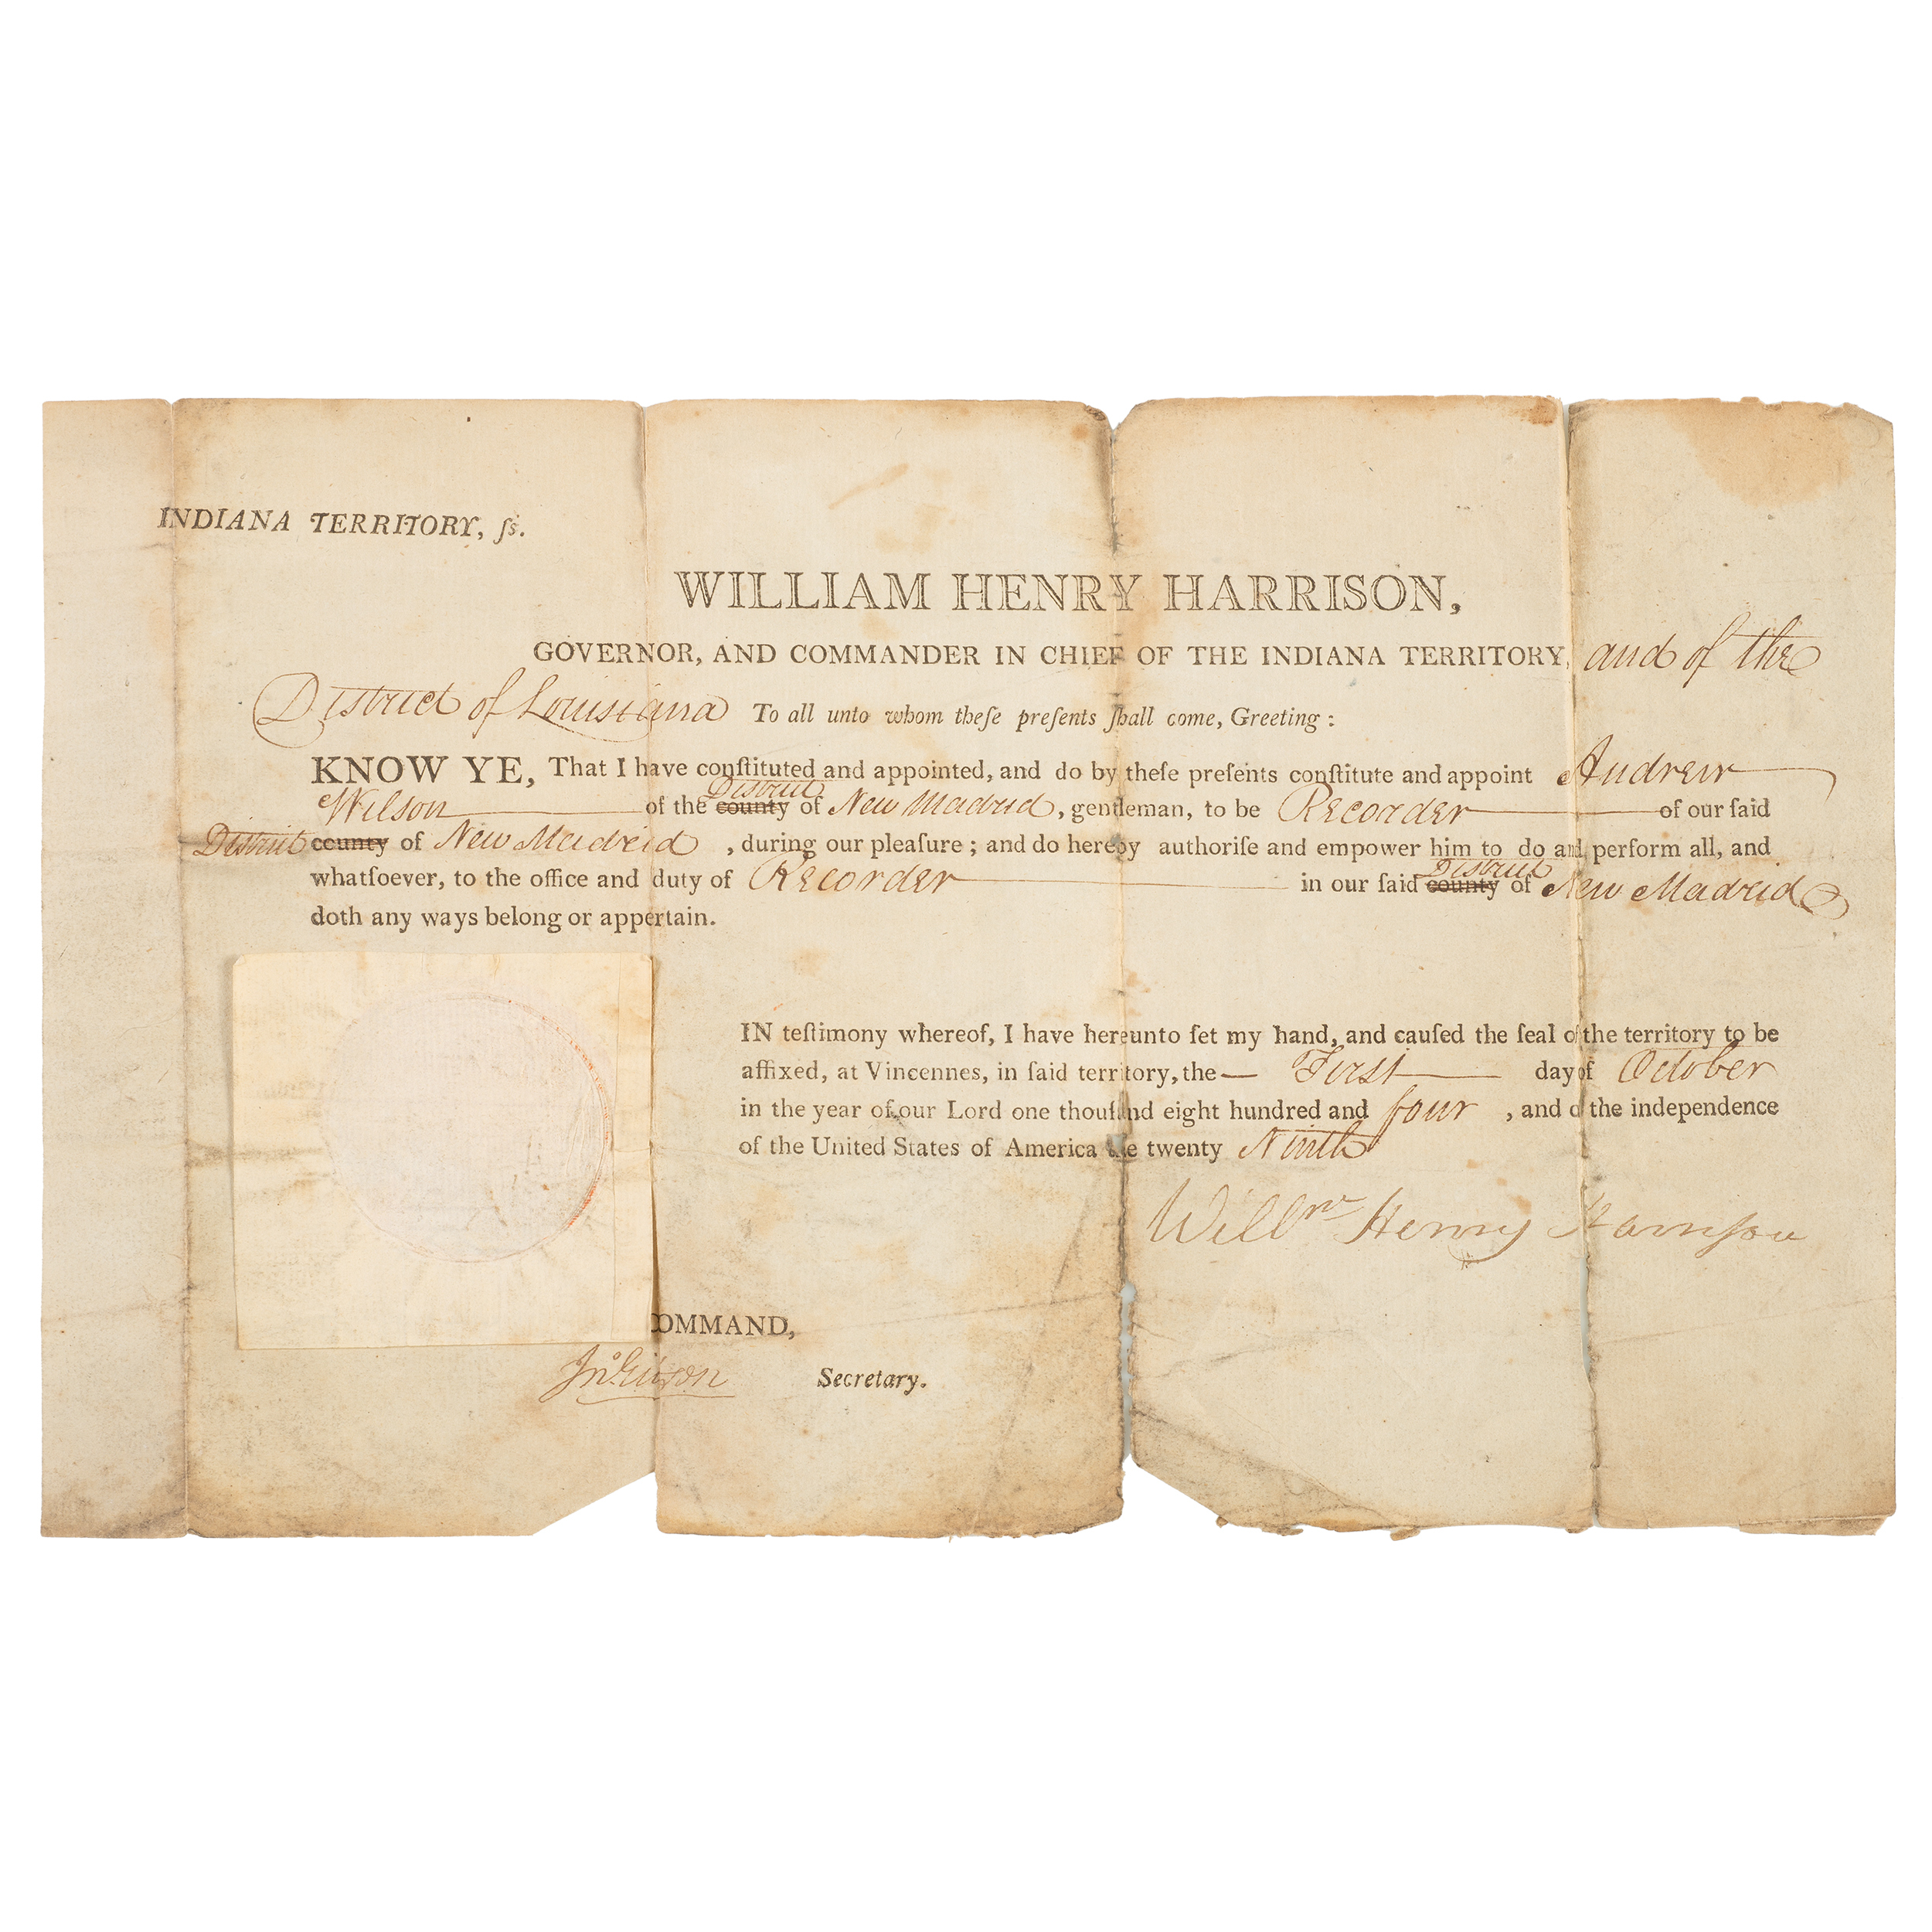 INDIANA TERRITORY, ſs.
WILLIAM HENRY HARRISON,
GOVERNOR, AND COMMANDER IN CHIEF OF THE INDIANA TERRITORY, and of the
District of Louisiana To all unto whom theſe preſents ſhall come, Greeting:
KNOW YE, That I have conſtituted and appointed, and do by theſe preſents conſtitute and appoint Andrew
Wilson of the county District of New Madrid, gentleman, to be Recorder of our ſaid
District county of New Madrid, during our pleaſure; and do hereby authoriſe and empower him to do and perform all, and
whatſoever, to the office and duty of Recorder in our ſaid county District of New Madrid
doth any ways belong or appertain.
IN teſtimony whereof, I have hereunto ſet my hand, and cauſed the ſeal of the territory to be
affixed, at Vincennes, in ſaid territory, the First day of October
in the year of our Lord one thouſand eight hundred and four, and of the independence
of the United States of America the twenty Ninth
Willm Henry Harrison
OMMAND,
Jno Gibson Secretary.